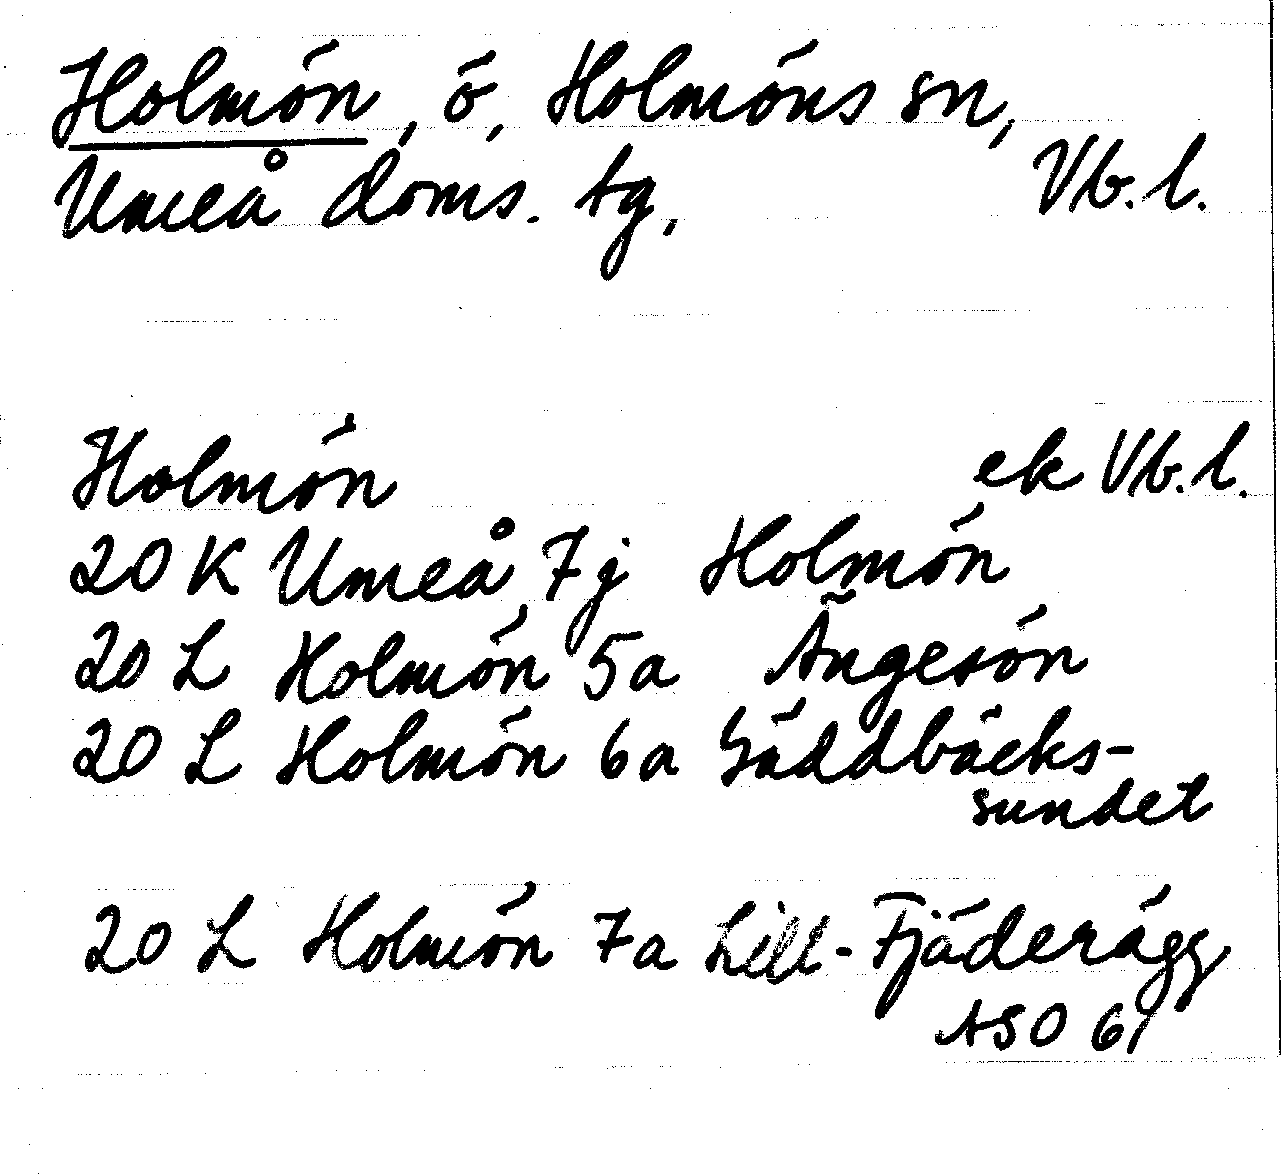 Holmön, ö, Holmöns sn,
Umeå doms. tg, Vb. l.
Holmön ek Vb. l.
20 K Umeå 7j Holmön
20 L Holmön 5a Ängesön
20 L Holmön 6a Gäddbäcks-
sundet
20 L Holmön 7a Lill-Fjäderägg
ASO 61